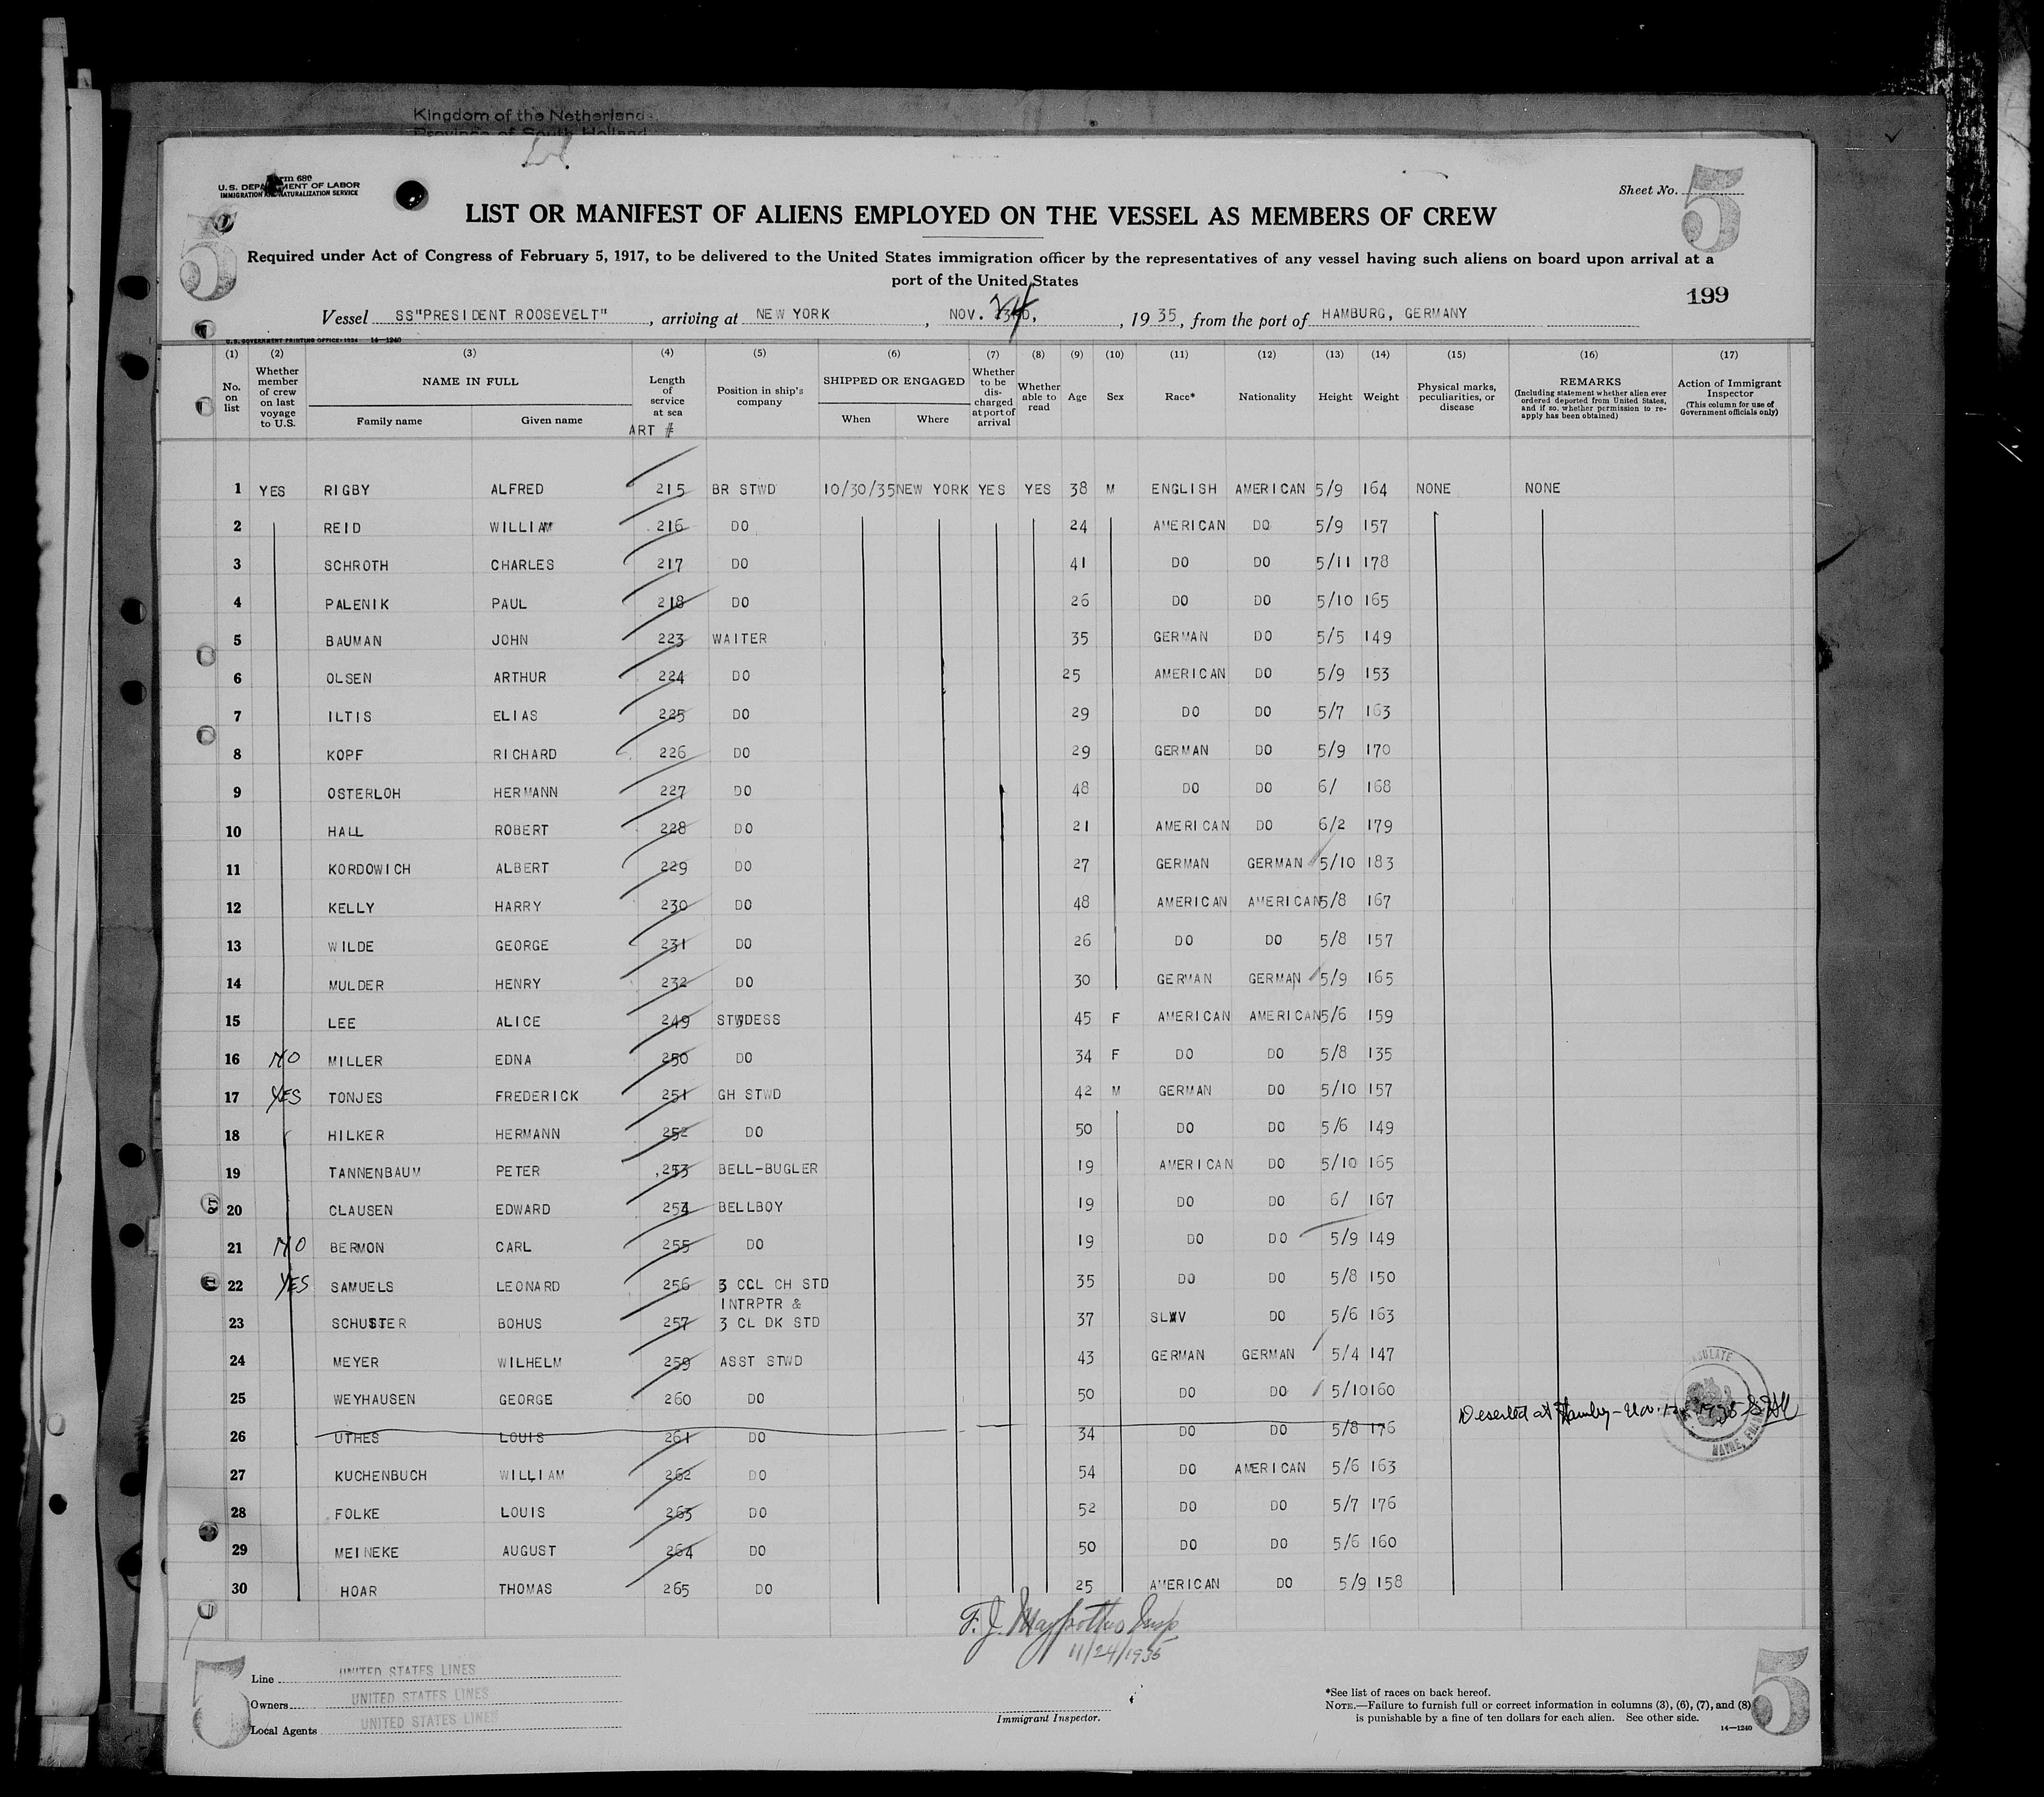 Kingdom of the Netherlands
Province of South Holland
Form 680
U.S. DEPARTMENT OF LABOR
IMMIGRATION AND NATURALIZATION SERVICE
Sheet No. 5
5
LIST OR MANIFEST OF ALIENS EMPLOYED ON THE VESSEL AS MEMBERS OF CREW
Required under Act of Congress of February 5, 1917, to be delivered to the United States immigration officer by the representatives of any vessel having such aliens on board upon arrival at a
port of the United States
199
Vessel SS"PRESIDENT ROOSEVELT", arriving at NEW YORK, NOV. 24, 1935, from the port of HAMBURG, GERMANY
U.S. GOVERNMENT PRINTING OFFICE: 1934 14—1240
(1) (2) (3) (4) (5) (6) (7) (8) (9) (10) (11) (12) (13) (14) (15) (16) (17)
No. on list
Whether member of crew on last voyage to U.S.
NAME IN FULL
Family name
Given name
Length of service at sea
ART #
Position in ship's company
SHIPPED OR ENGAGED
When
Where
Whether to be discharged at port of arrival
Whether able to read
Age
Sex
Race*
Nationality
Height
Weight
Physical marks, peculiarities, or disease
REMARKS
(Including statement whether alien ever ordered deported from United States, and if so, whether permission to reapply has been obtained)
Action of Immigrant Inspector
(This column for use of Government officials only)
1 YES RIGBY ALFRED 215 BR STWD 10/30/35 NEW YORK YES YES 38 M ENGLISH AMERICAN 5/9 164 NONE NONE
2 REID WILLIAM 216 DO 24 AMERICAN DO 5/9 157
3 SCHROTH CHARLES 217 DO 41 DO DO 5/11 178
4 PALENIK PAUL 218 DO 26 DO DO 5/10 165
5 BAUMAN JOHN 223 WAITER 35 GERMAN DO 5/5 149
6 OLSEN ARTHUR 224 DO 25 AMERICAN DO 5/9 153
7 ILTIS ELIAS 225 DO 29 DO DO 5/7 163
8 KOPF RICHARD 226 DO 29 GERMAN DO 5/9 170
9 OSTERLOH HERMANN 227 DO 48 DO DO 6/ 168
10 HALL ROBERT 228 DO 21 AMERICAN DO 6/2 179
11 KORDOWICH ALBERT 229 DO 27 GERMAN GERMAN 5/10 183
12 KELLY HARRY 230 DO 48 AMERICAN AMERICAN 5/8 167
13 WILDE GEORGE 231 DO 26 DO DO 5/8 157
14 MULDER HENRY 232 DO 30 GERMAN GERMAN 5/9 165
15 LEE ALICE 249 STWDESS 45 F AMERICAN AMERICAN 5/6 159
16 NO MILLER EDNA 250 DO 34 F DO DO 5/8 135
17 YES TONJES FREDERICK 251 GH STWD 42 M GERMAN DO 5/10 157
18 HILKER HERMANN 252 DO 50 DO DO 5/6 149
19 TANNENBAUM PETER 253 BELL-BUGLER 19 AMERICAN DO 5/10 165
20 CLAUSEN EDWARD 254 BELLBOY 19 DO DO 6/ 167
21 NO BERMON CARL 255 DO 19 DO DO 5/9 149
22 YES SAMUELS LEONARD 256 3 CCL CH STD 35 DO DO 5/8 150
INTRPTR &
23 SCHUSTER BOHUS 257 3 CL DK STD 37 SLAV DO 5/6 163
24 MEYER WILHELM 259 ASST STWD 43 GERMAN GERMAN 5/4 147
25 WEYHAUSEN GEORGE 260 DO 50 DO DO 5/10 160
26 UTHES LOUIS 261 DO 34 DO DO 5/8 176 Deserted at Hamburg - Nov. 1935
27 KUCHENBUCH WILLIAM 262 DO 54 DO AMERICAN 5/6 163
28 FOLKE LOUIS 263 DO 52 DO DO 5/7 176
29 MEINEKE AUGUST 264 DO 50 DO DO 5/6 160
30 HOAR THOMAS 265 DO 25 AMERICAN DO 5/9 158
F. J. Insp
11/24/1935
5
Line UNITED STATES LINES
Owners UNITED STATES LINES
Local Agents UNITED STATES LINES
Immigrant Inspector.
*See list of races on back hereof.
NOTE.—Failure to furnish full or correct information in columns (3), (6), (7), and (8)
is punishable by a fine of ten dollars for each alien. See other side.
14—1240
5